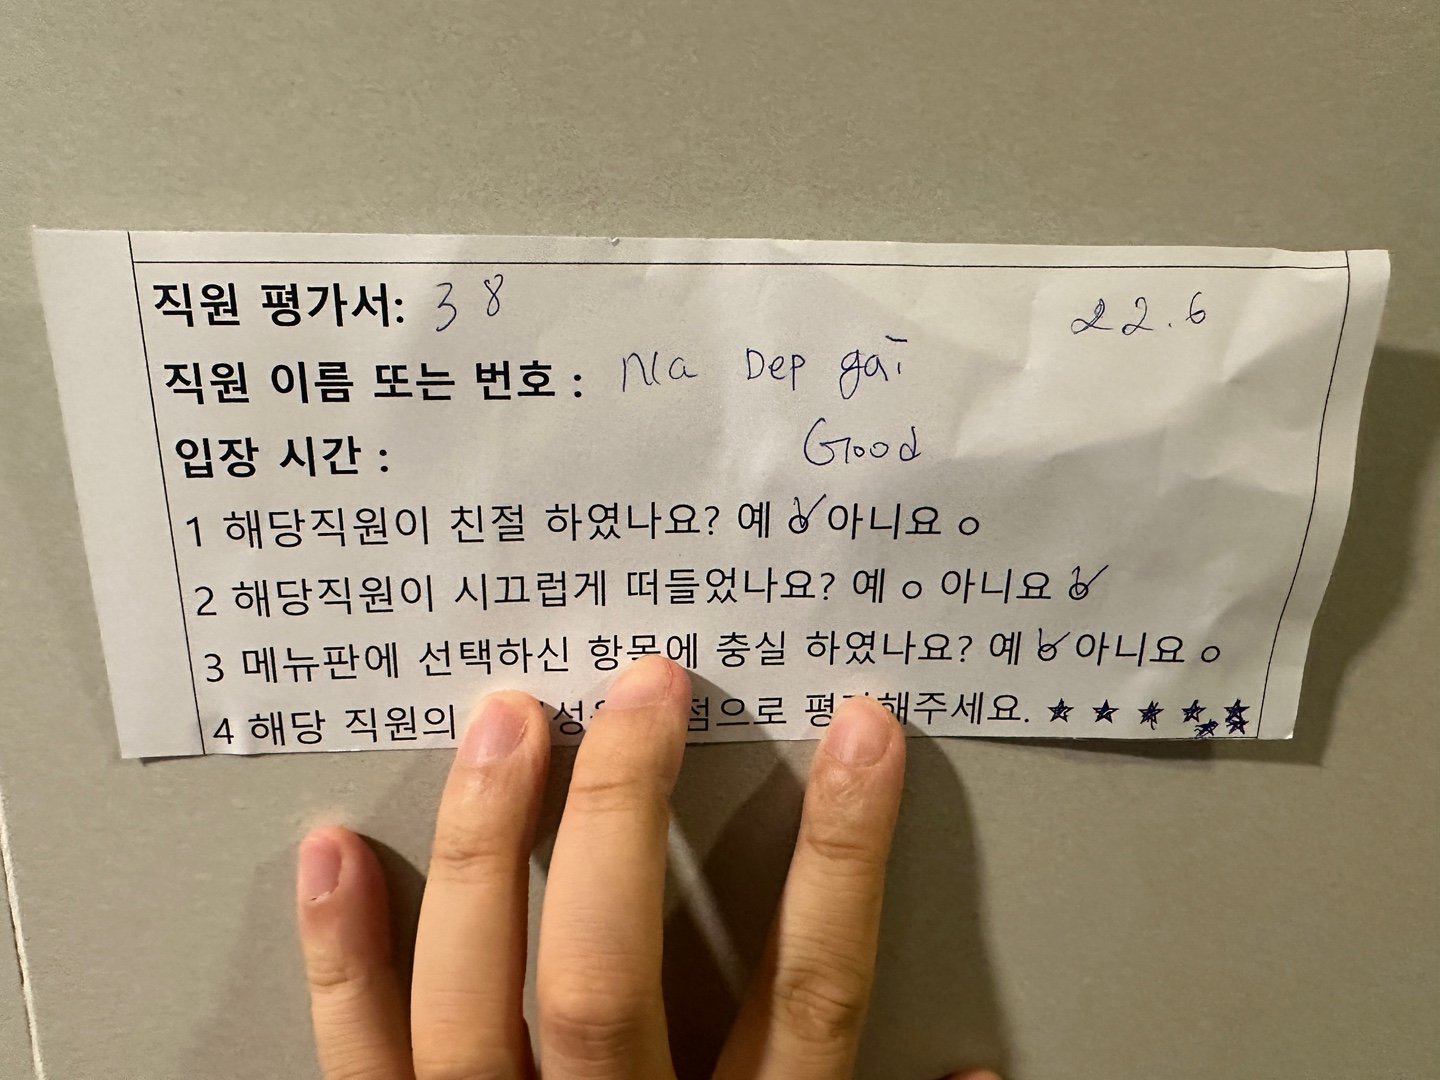 직원 평가서: 38 22.6
직원 이름 또는 번호 : Na Dep gai
입장 시간 : Good
1 해당직원이 친절 하였나요? 예 o 아니요 o
2 해당직원이 시끄럽게 떠들었나요? 예 o 아니요 o
3 메뉴판에 선택하신 항목에 충실 하였나요? 예 o 아니요 o
4 해당 직원의 점으로 해주세요. ★ ★ ★ ★ ★ ★ ★